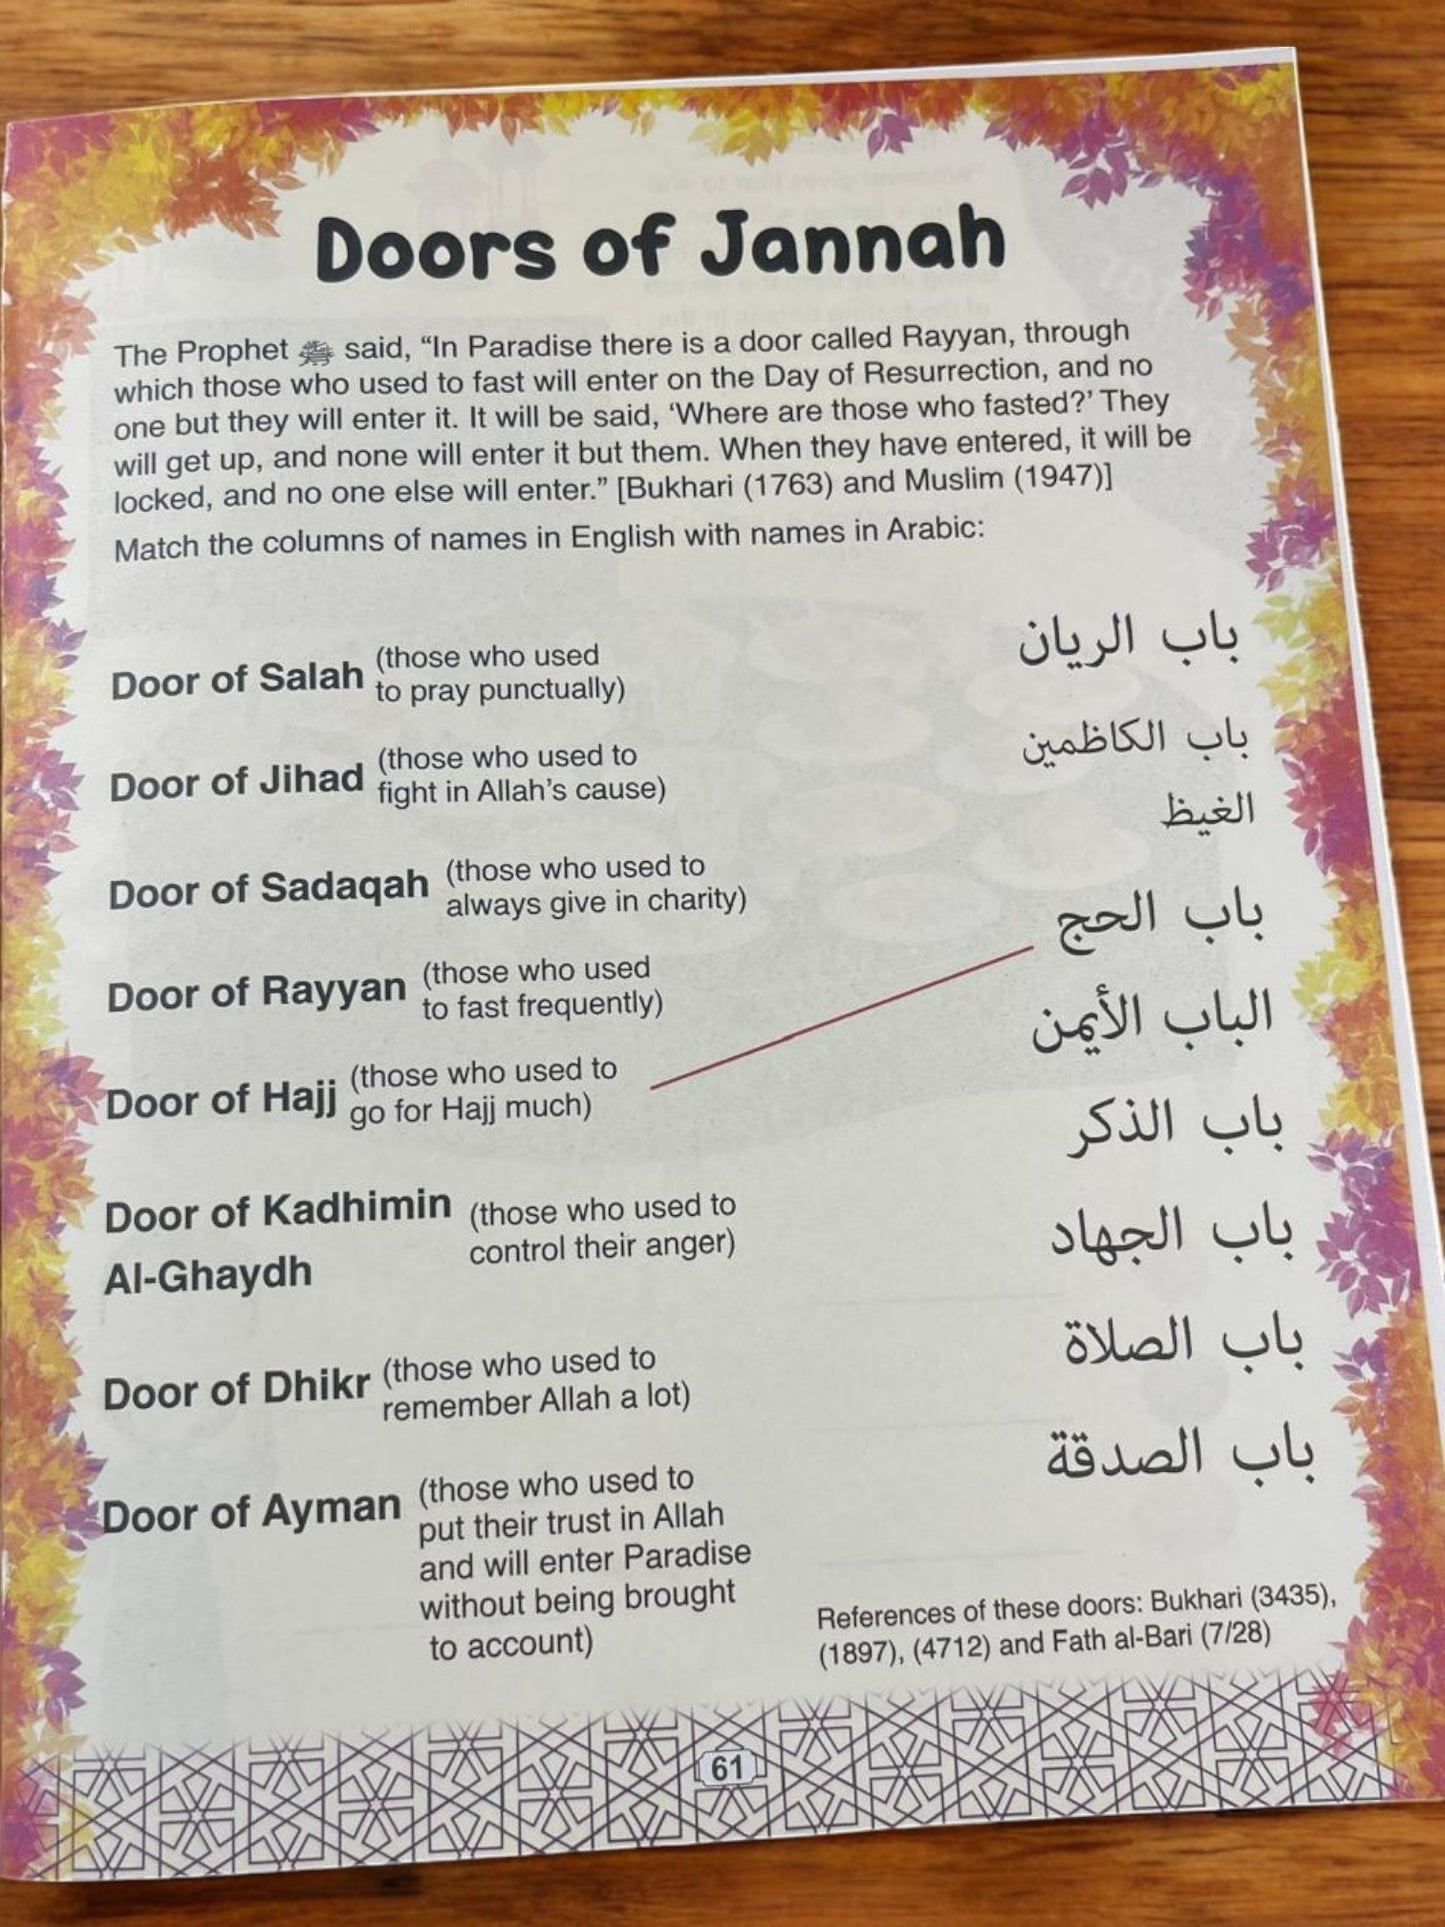 Doors of Jannah
The Prophet ﷺ said, “In Paradise there is a door called Rayyan, through
which those who used to fast will enter on the Day of Resurrection, and no
one but they will enter it. It will be said, ‘Where are those who fasted?’ They
will get up, and none will enter it but them. When they have entered, it will be
locked, and no one else will enter.” [Bukhari (1763) and Muslim (1947)]
Match the columns of names in English with names in Arabic:
Door of Salah (those who used
to pray punctually)
Door of Jihad (those who used to
fight in Allah’s cause)
Door of Sadaqah (those who used to
always give in charity)
Door of Rayyan (those who used
to fast frequently)
Door of Hajj (those who used to
go for Hajj much)
Door of Kadhimin (those who used to
Al-Ghaydh control their anger)
Door of Dhikr (those who used to
remember Allah a lot)
Door of Ayman (those who used to
put their trust in Allah
and will enter Paradise
without being brought
to account)
باب الريان
باب الكاظمين
الغيظ
باب الحج
الباب الأيمن
باب الذكر
باب الجهاد
باب الصلاة
باب الصدقة
References of these doors: Bukhari (3435),
(1897), (4712) and Fath al-Bari (7/28)
61